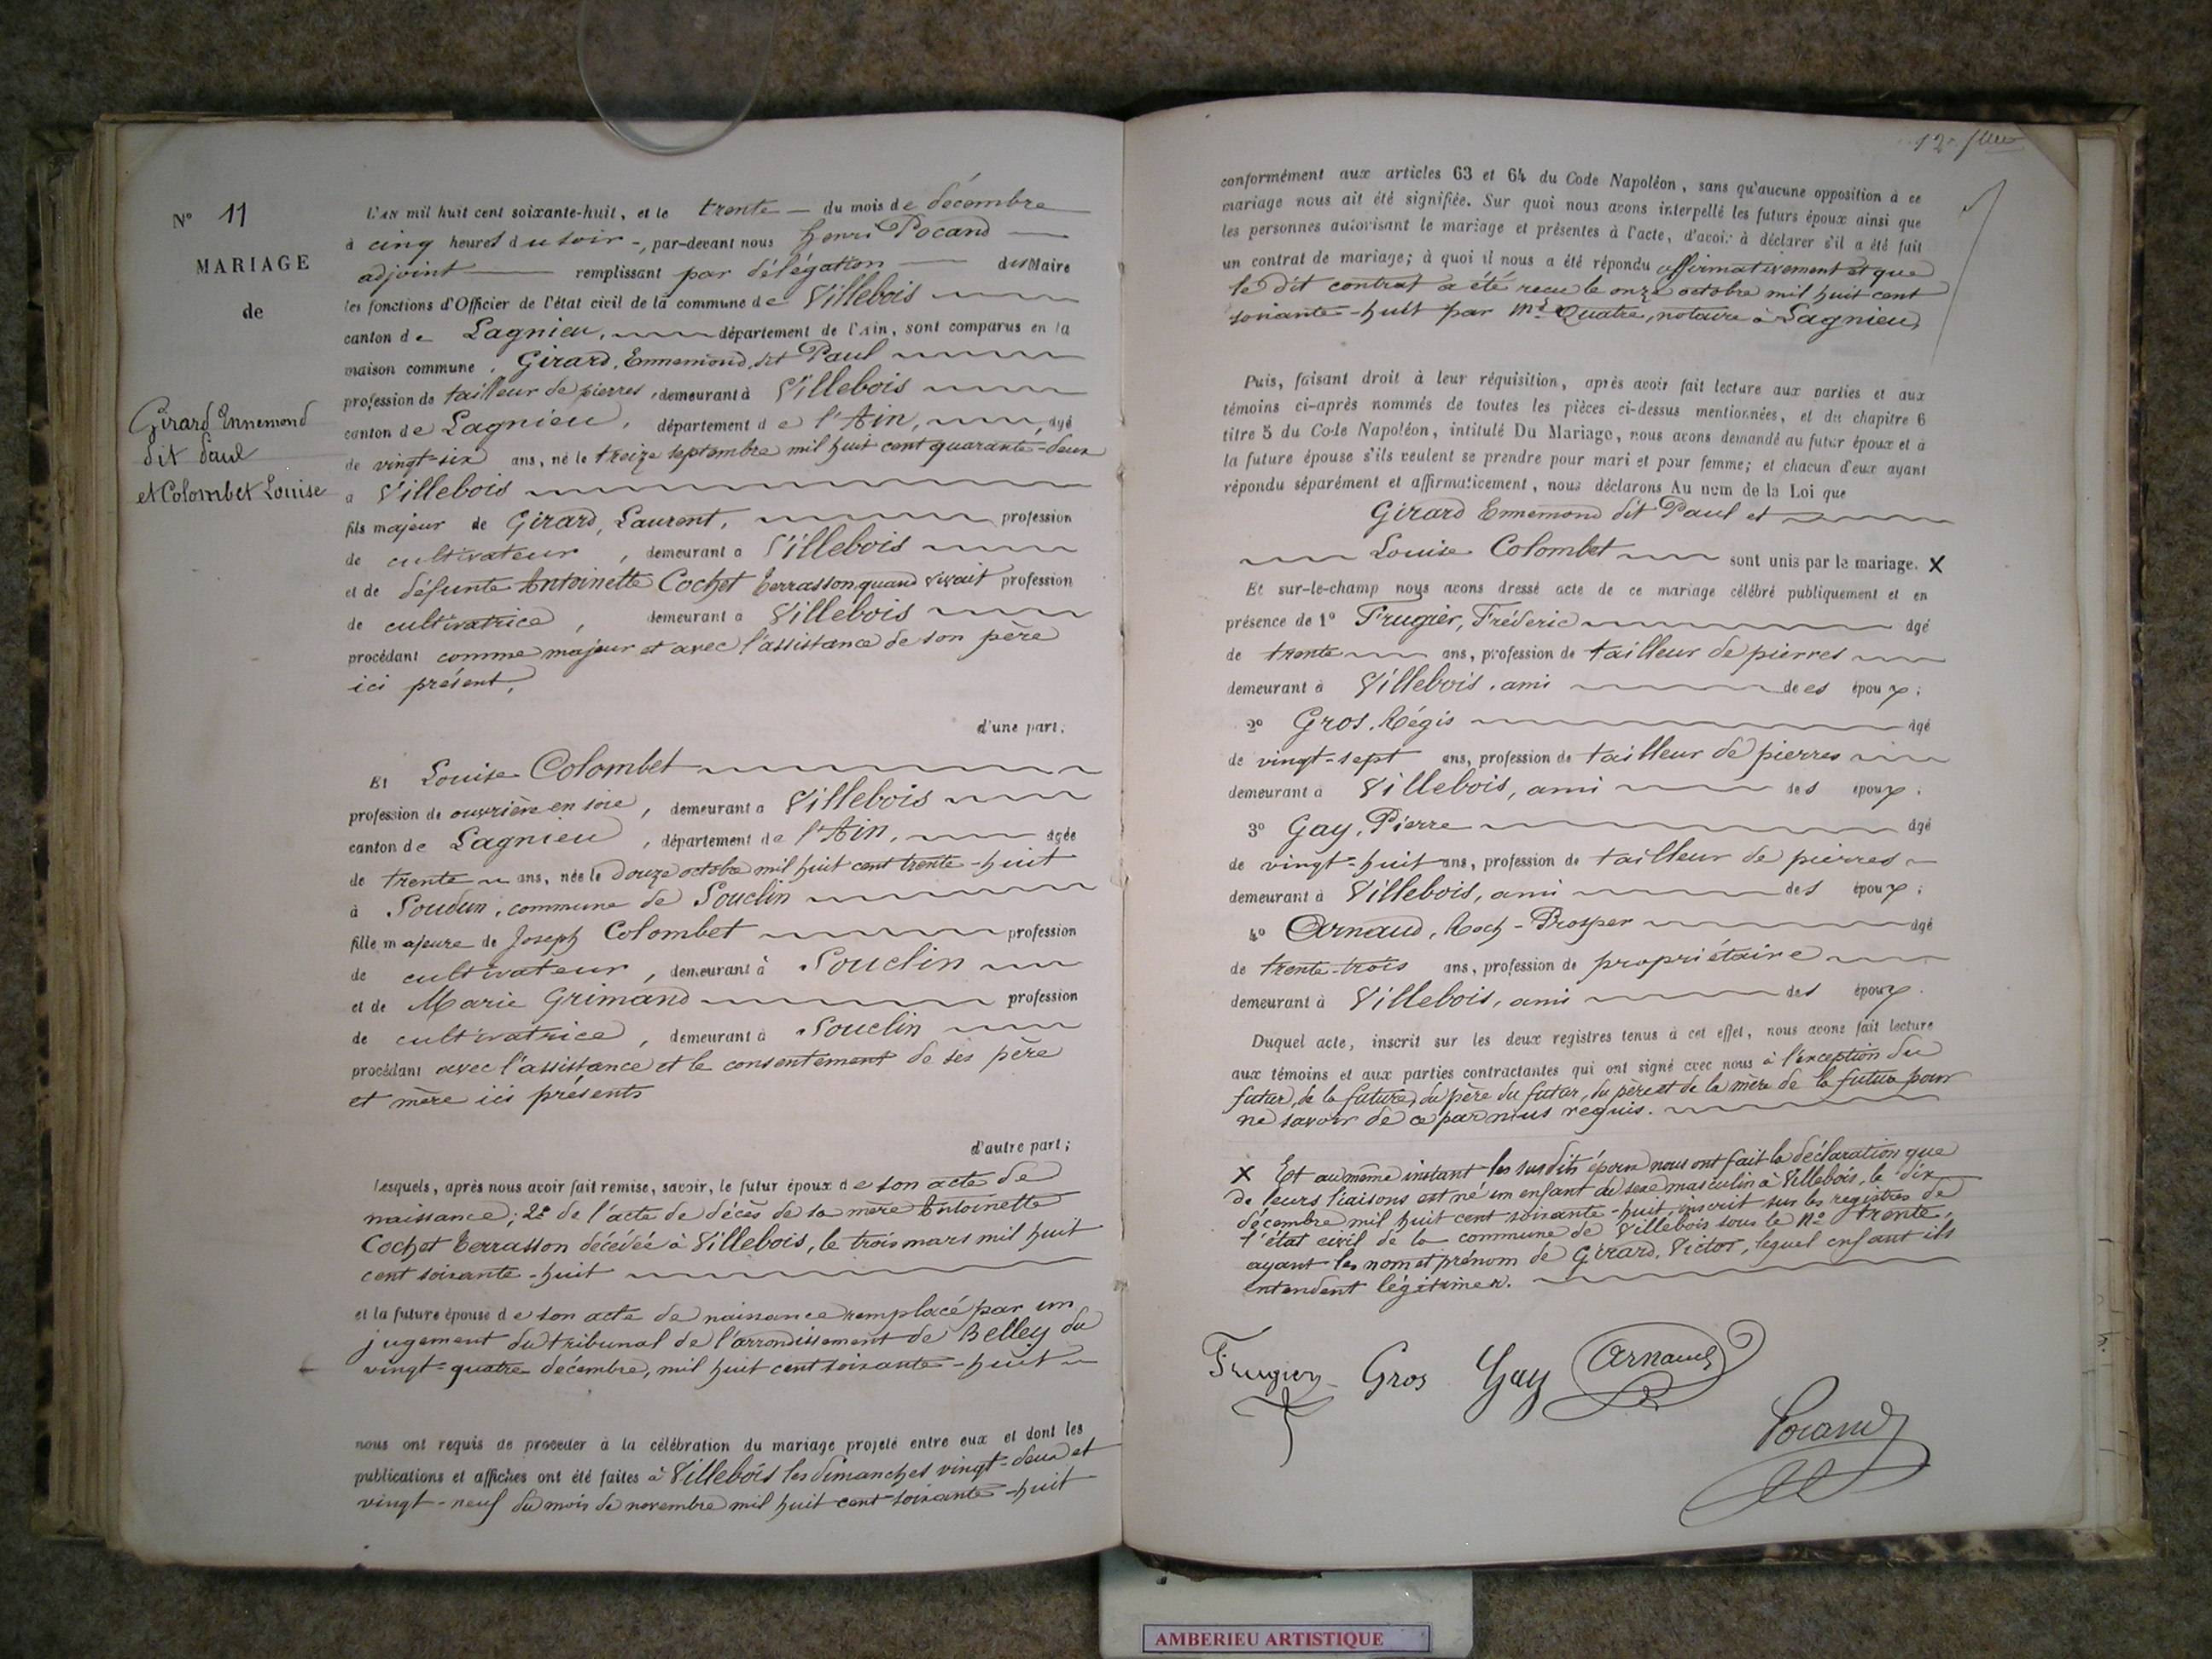 N° 11
MARIAGE
de
Girard Ennemond
dit Paul
et Colombet Louise
L'AN mil huit cent soixante-huit, et le trente du mois de décembre
à cinq heures du soir, par-devant nous Henri Pocand
adjoint remplissant par délégation du Maire
les fonctions d'Officier de l'état civil de la commune de Villebois
canton de Lagnieu, département de l'Ain, sont comparus en la
maison commune, Girard, Ennemond, dit Paul
profession de tailleur de pierres, demeurant à Villebois
canton de Lagnieu, département de l'Ain, âgé
de vingt-six ans, né le treize septembre mil huit cent quarante-deux
à Villebois
fils majeur de Girard, Laurent, profession
de cultivateur, demeurant à Villebois
et de défunte Antoinette Cochet Terrasson quand vivait profession
de cultivatrice, demeurant à Villebois
procédant comme majeur et avec l'assistance de son père
ici présent,
d'une part;
Et Louise Colombet
profession de ouvrière en soie, demeurant à Villebois
canton de Lagnieu, département de l'Ain, âgée
de trente ans, née le douze octobre mil huit cent trente-huit
à Soudun, commune de Souclin
fille majeure de Joseph Colombet profession
de cultivateur, demeurant à Souclin
et de Marie Grimand profession
de cultivatrice, demeurant à Souclin
procédant avec l'assistance et le consentement de ses père
et mère ici présents
d'autre part;
Lesquels, après nous avoir fait remise, savoir, le futur époux de son acte de
naissance; 2° de l'acte de décès de sa mère Antoinette
Cochet Terrasson décédée à Villebois, le trois mars mil huit
cent soixante-huit
et la future épouse de son acte de naissance remplacé par un
jugement du tribunal de l'arrondissement de Belley du
vingt-quatre décembre, mil huit cent soixante-huit
nous ont requis de procéder à la célébration du mariage projeté entre eux et dont les
publications et affiches ont été faites à Villebois les dimanches vingt-deux et
vingt-neuf du mois de novembre mil huit cent soixante-huit
conformément aux articles 63 et 64 du Code Napoléon, sans qu'aucune opposition à ce
mariage nous ait été signifiée. Sur quoi nous avons interpellé les futurs époux ainsi que
les personnes autorisant le mariage et présentes à l'acte, d'avoir à déclarer s'il a été fait
un contrat de mariage; à quoi il nous a été répondu affirmativement et que
le dit contrat a été reçu le onze octobre mil huit cent
soixante-huit par Me Quatre, notaire à Lagnieu,
Puis, faisant droit à leur réquisition, après avoir fait lecture aux parties et aux
témoins ci-après nommés de toutes les pièces ci-dessus mentionnées, et du chapitre 6
titre 5 du Code Napoléon, intitulé Du Mariage, nous avons demandé au futur époux et à
la future épouse s'ils veulent se prendre pour mari et pour femme; et chacun d'eux ayant
répondu séparément et affirmativement, nous déclarons Au nom de la Loi que
Girard Ennemond dit Paul et
Louise Colombet sont unis par le mariage. X
Et sur-le-champ nous avons dressé acte de ce mariage célébré publiquement et en
présence de 1° Frugier, Fréderic âgé
de trente ans, profession de tailleur de pierres
demeurant à Villebois, ami des époux;
2° Gros, Régis âgé
de vingt-sept ans, profession de tailleur de pierres
demeurant à Villebois, ami des époux;
3° Gay, Pierre âgé
de vingt-huit ans, profession de tailleur de pierres
demeurant à Villebois, ami des époux;
4° Arnaud, Roch-Prosper âgé
de trente-trois ans, profession de propriétaire
demeurant à Villebois, ami des époux.
Duquel acte, inscrit sur les deux registres tenus à cet effet, nous avons fait lecture
aux témoins et aux parties contractantes qui ont signé avec nous à l'exception du
futur, de la future, du père du futur, du père et de la mère de la future pour
ne savoir de ce par nous requis.
X Et au même instant les susdits époux nous ont fait la déclaration que
de leurs liaisons est né un enfant du sexe masculin à Villebois, le dix
décembre mil huit cent soixante-huit inscrit sur les registres de
l'état civil de la commune de Villebois sous le N° trente,
ayant les nom et prénom de Girard, Victor, lequel enfant ils
entendent légitimer.
Frugier Gros Gay Arnaud
Pocand
AMBERIEU ARTISTIQUE